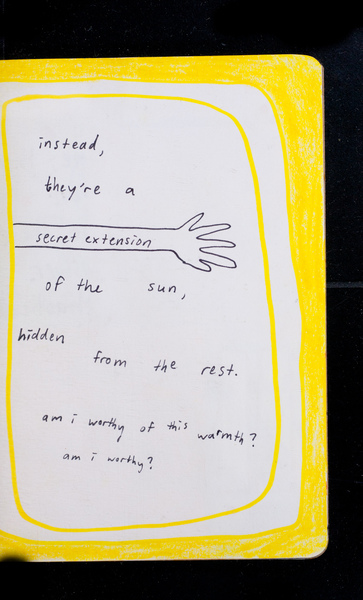 instead,
they're a
secret extension
of the sun,
hidden
from the rest.
am i worthy of this warmth?
am i worthy?